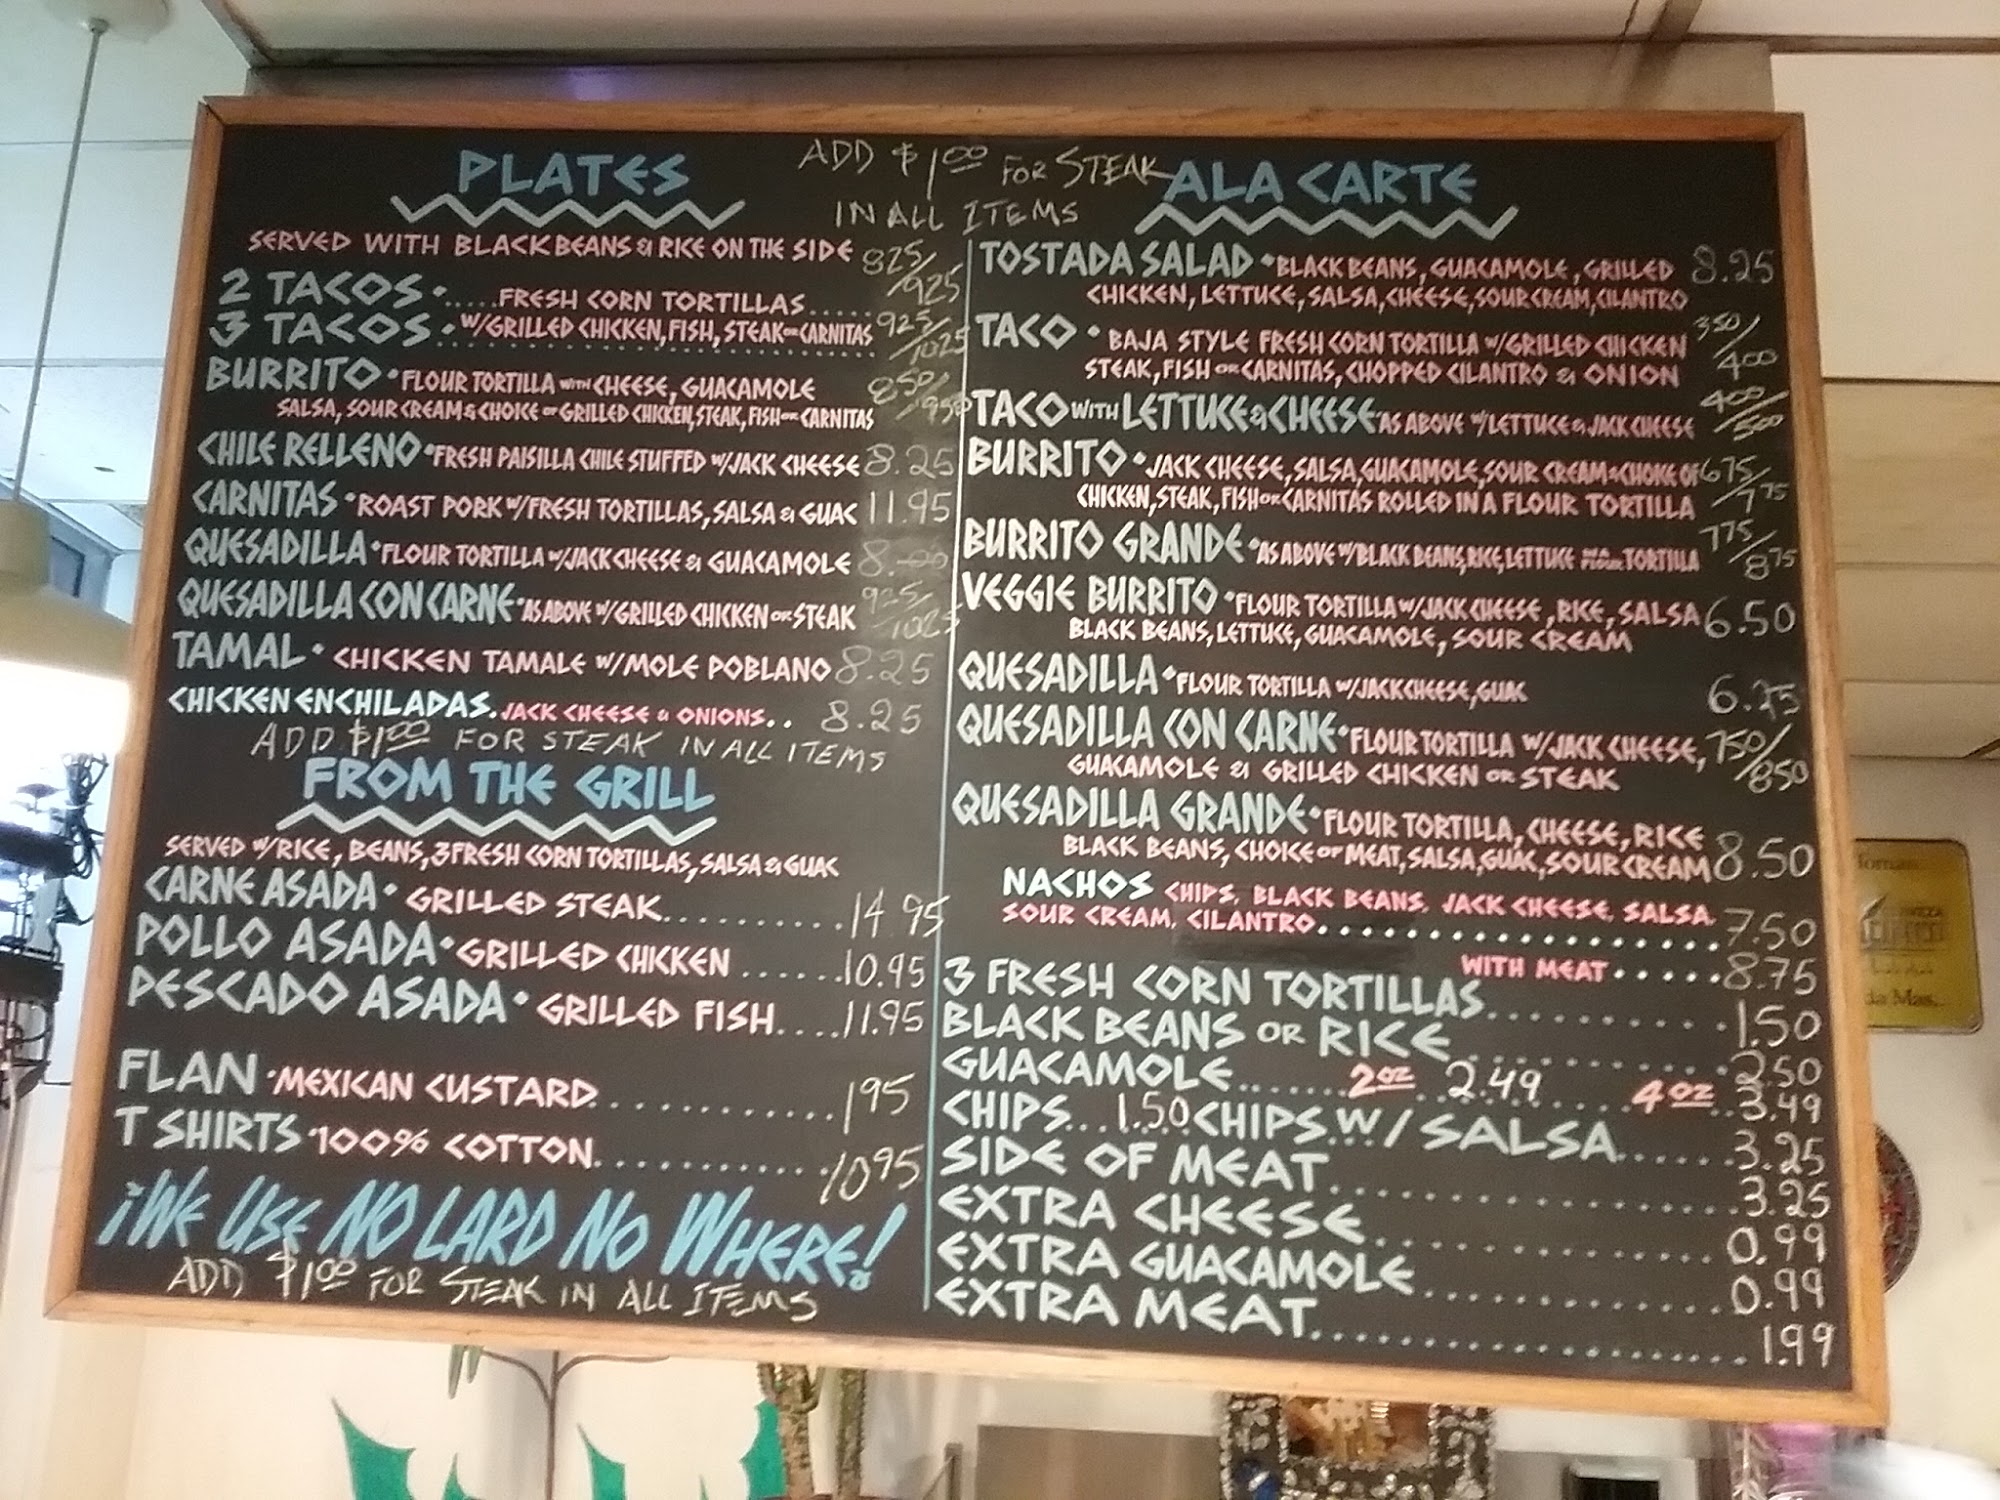 PLATES
ADD $1.00 FOR STEAK
IN ALL ITEMS
SERVED WITH BLACK BEANS & RICE ON THE SIDE
2 TACOS · .....FRESH CORN TORTILLAS..... 825/925
3 TACOS · W/GRILLED CHICKEN, FISH, STEAK OR CARNITAS 925/1025
BURRITO · FLOUR TORTILLA WITH CHEESE, GUACAMOLE 850/950
SALSA, SOUR CREAM & CHOICE OF GRILLED CHICKEN, STEAK, FISH OR CARNITAS
CHILE RELLENO · FRESH PAISILLA CHILE STUFFED W/JACK CHEESE 8.25
CARNITAS · ROAST PORK W/FRESH TORTILLAS, SALSA & GUAC 11.95
QUESADILLA · FLOUR TORTILLA W/JACK CHEESE & GUACAMOLE 8.00
QUESADILLA CON CARNE · AS ABOVE W/GRILLED CHICKEN OR STEAK 925/1025
TAMAL · CHICKEN TAMALE W/MOLE POBLANO 8.25
CHICKEN ENCHILADAS. JACK CHEESE & ONIONS.. 8.25
ADD $1.00 FOR STEAK IN ALL ITEMS
FROM THE GRILL
SERVED W/RICE, BEANS, 3 FRESH CORN TORTILLAS, SALSA & GUAC
CARNE ASADA · GRILLED STEAK.......... 14.95
POLLO ASADA · GRILLED CHICKEN ...... 10.95
PESCADO ASADA · GRILLED FISH.... 11.95
FLAN · MEXICAN CUSTARD............. 195
T SHIRTS · 100% COTTON............. 1095
¡WE USE NO LARD NO WHERE!
ADD $1.00 FOR STEAK IN ALL ITEMS
ALA CARTE
TOSTADA SALAD · BLACK BEANS, GUACAMOLE, GRILLED 8.25
CHICKEN, LETTUCE, SALSA, CHEESE, SOUR CREAM, CILANTRO
TACO · BAJA STYLE FRESH CORN TORTILLA W/GRILLED CHICKEN 350/400
STEAK, FISH OR CARNITAS, CHOPPED CILANTRO & ONION
TACO WITH LETTUCE & CHEESE · AS ABOVE W/LETTUCE & JACK CHEESE 400/500
BURRITO · JACK CHEESE, SALSA, GUACAMOLE, SOUR CREAM & CHOICE OF 675/775
CHICKEN, STEAK, FISH OR CARNITAS ROLLED IN A FLOUR TORTILLA
BURRITO GRANDE · AS ABOVE W/BLACK BEANS, RICE, LETTUCE FLOUR TORTILLA 775/875
VEGGIE BURRITO · FLOUR TORTILLA W/JACK CHEESE, RICE, SALSA 6.50
BLACK BEANS, LETTUCE, GUACAMOLE, SOUR CREAM
QUESADILLA · FLOUR TORTILLA W/JACK CHEESE, GUAC 6.25
QUESADILLA CON CARNE · FLOUR TORTILLA W/JACK CHEESE, 750/850
GUACAMOLE & GRILLED CHICKEN OR STEAK
QUESADILLA GRANDE · FLOUR TORTILLA, CHEESE, RICE
BLACK BEANS, CHOICE OF MEAT, SALSA, GUAC, SOUR CREAM 8.50
NACHOS CHIPS, BLACK BEANS, JACK CHEESE, SALSA,
SOUR CREAM, CILANTRO.................... 7.50
WITH MEAT ...... 8.75
3 FRESH CORN TORTILLAS............ 1.50
BLACK BEANS OR RICE............. 2.50
GUACAMOLE....... 2 OZ 2.49 ...... 4 OZ .. 3.49
CHIPS... 1.50 CHIPS W/SALSA...... 3.25
SIDE OF MEAT.................. 3.25
EXTRA CHEESE................. 0.99
EXTRA GUACAMOLE............. 0.99
EXTRA MEAT.................... 1.99
da Mas...